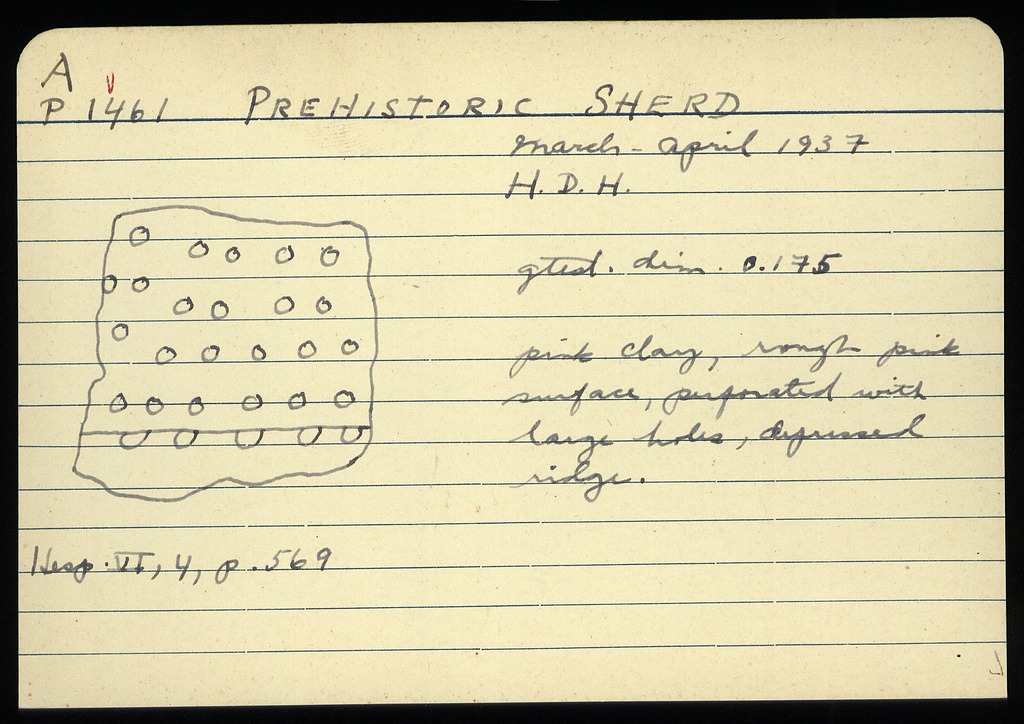 A
P 1461 PREHISTORIC SHERD
March - April 1937
H. D. H.
gtest. dim. 0.175
pink clay, rough pink
surface, perforated with
large holes, depressed
ridge.
Hesp. VI, 4, p. 569